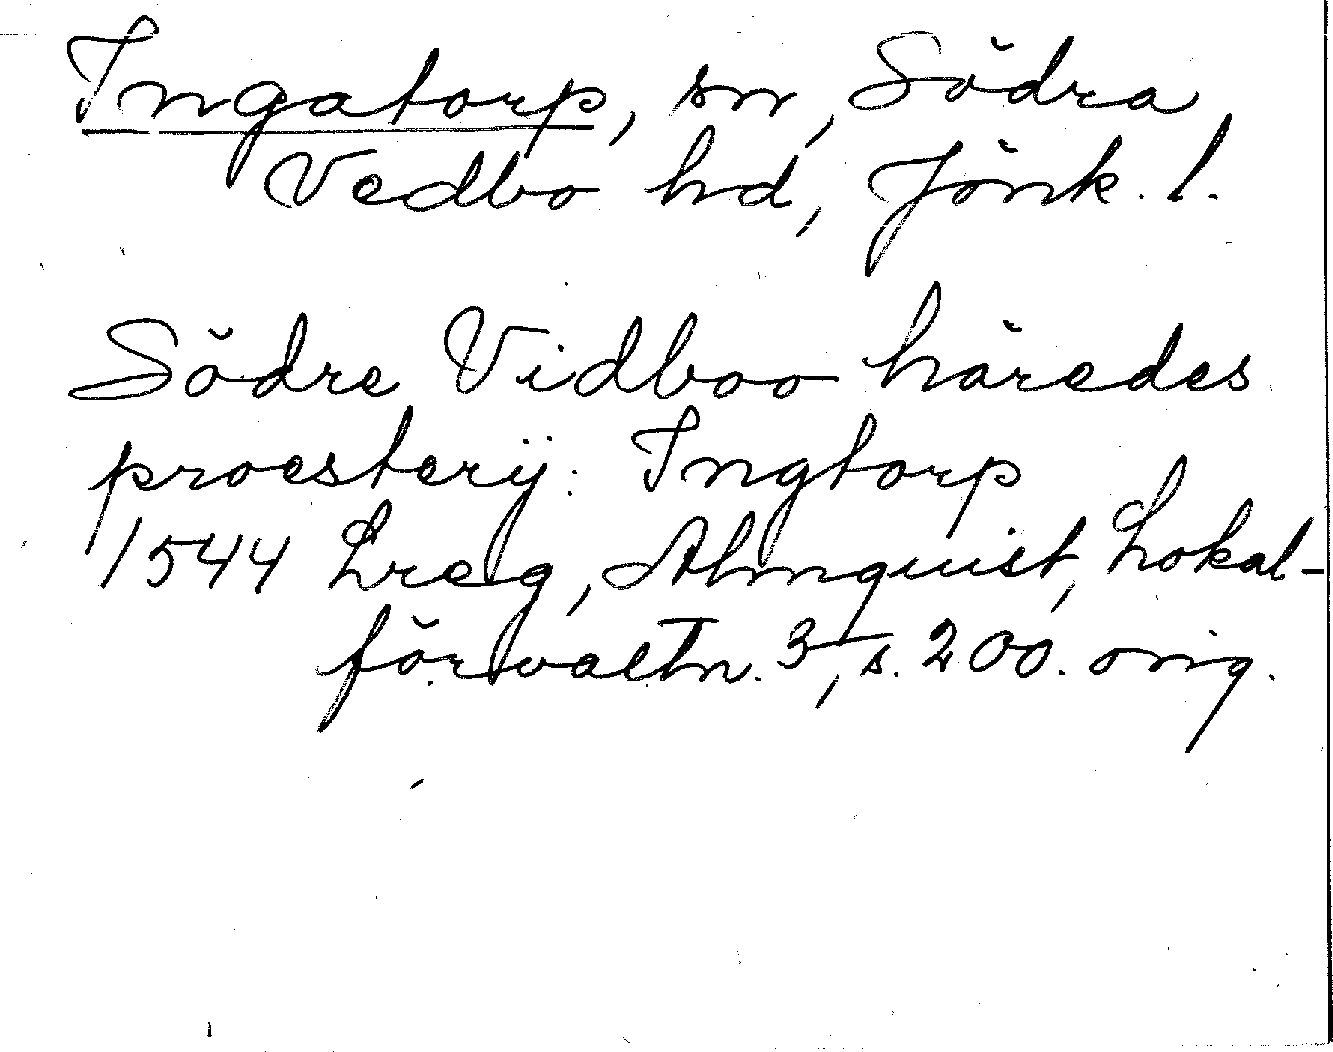 Ingatorp, sn, Södra
Vedbo hd, Jönk. l.
Södre Vidboo häredes
proesterij: Ingtorp
1544 Lreg, Almquist, Lokal-
förvaltn. 3, s. 200. orig.